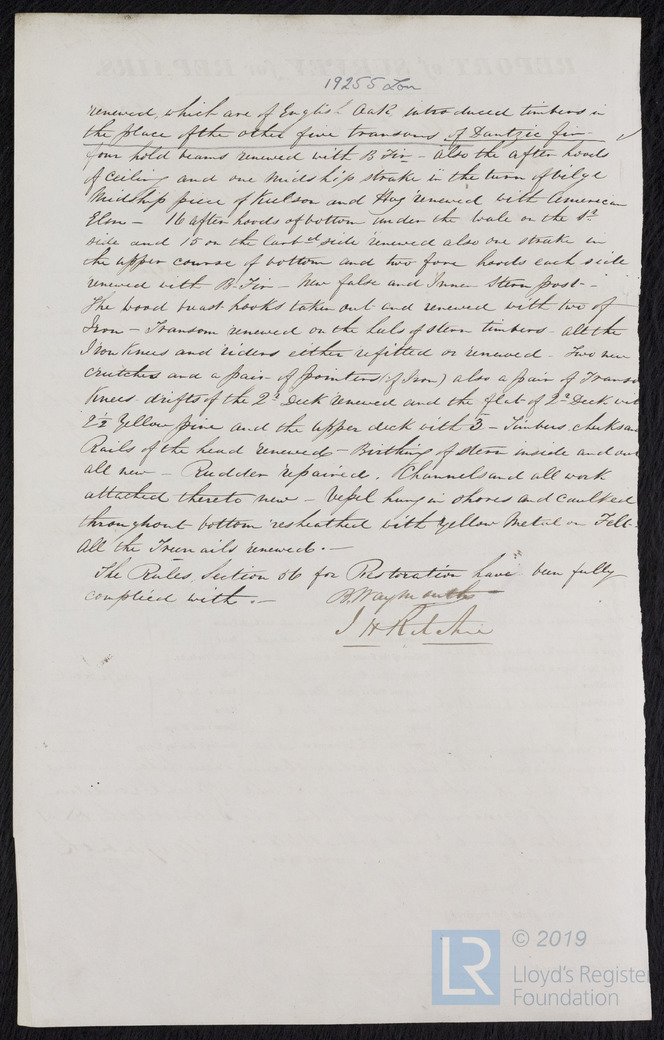 19255 Lon
renewed, which are of English Oak, introduced timbers in
the place of the other five transoms of Dantzic fir -
four hold beams renewed with B Fir - also the after hoods
of Ceiling and one Midship strake in the turn of bilge
Midship piece of Keelson and Hog renewed with American
Elm - 16 after hoods of bottom under the wale on the Sd
side and 15 on the larbd side renewed also one strake in
the upper course of bottom and two fore hoods each side
renewed with B. Fir - New false and Inner Stern post -
The wood breast hooks taken out and renewed with two of
Iron - Transom renewed on the heels of stern timbers - all the
Iron Knees and riders either refitted or renewed - Two new
Crutches and a pair of pointers (of Iron) also a pair of Transo
Knees. drifts of the 2d Deck renewed and the flat of 2d Deck with
2½ Yellow pine and the upper deck with 3 - Timbers, cheeks and
Rails of the head renewed - Birthing of stern inside and out
all new - Rudder repaired. Channels and all work
attached thereto new - Vessel hung in shores and caulked
throughout bottom resheathed with Yellow Metal on Felt -
all the Treenails renewed. -
The Rules, Section 56 for Restoration have been fully
complied with. -
B Waymouth
J H Ritchie
LR
© 2019
Lloyd's Register
Foundation